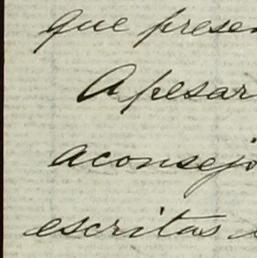 que presen
Apesar
aconsejo
escritas